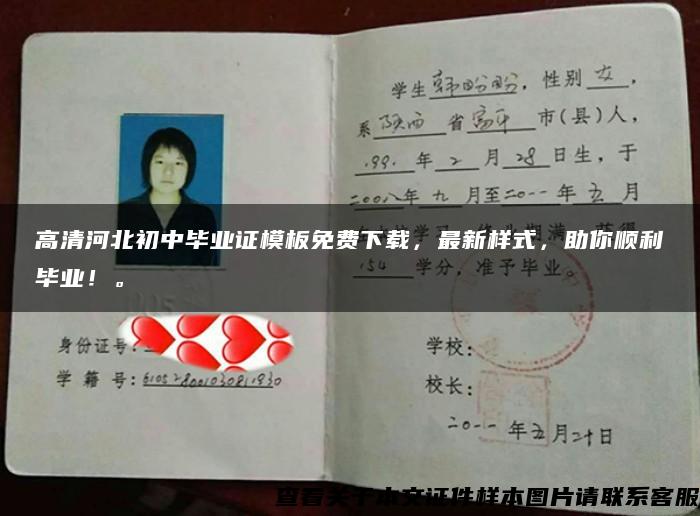 学生韩盼盼，性别女，
系陕西省富平市(县)人，
199.年2月28日生，于
二00八年九月至二0一一年五月
高清河北初中毕业证模板免费下载，最新样式，助你顺利
毕业！。
154学分，准予毕业。
身份证号：
学籍号：
学校：
校长：
二0一一年五月二十日
查看关于本文证件样本图片请联系客服